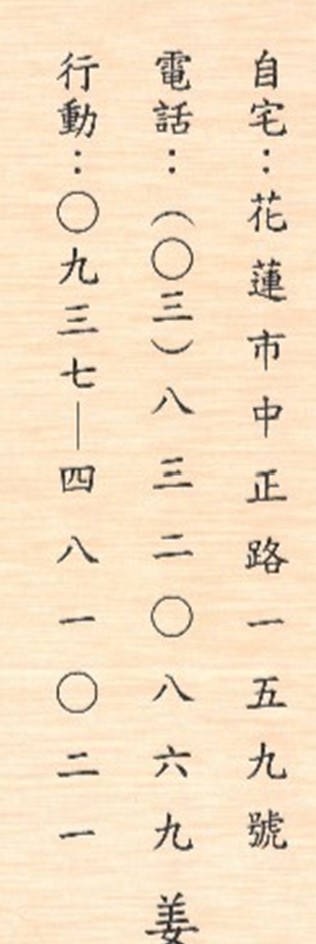 自宅：花蓮市中正路一五九號
電話：（〇三）八三二〇八六九
姜
行動：〇九三七—四八一〇二一